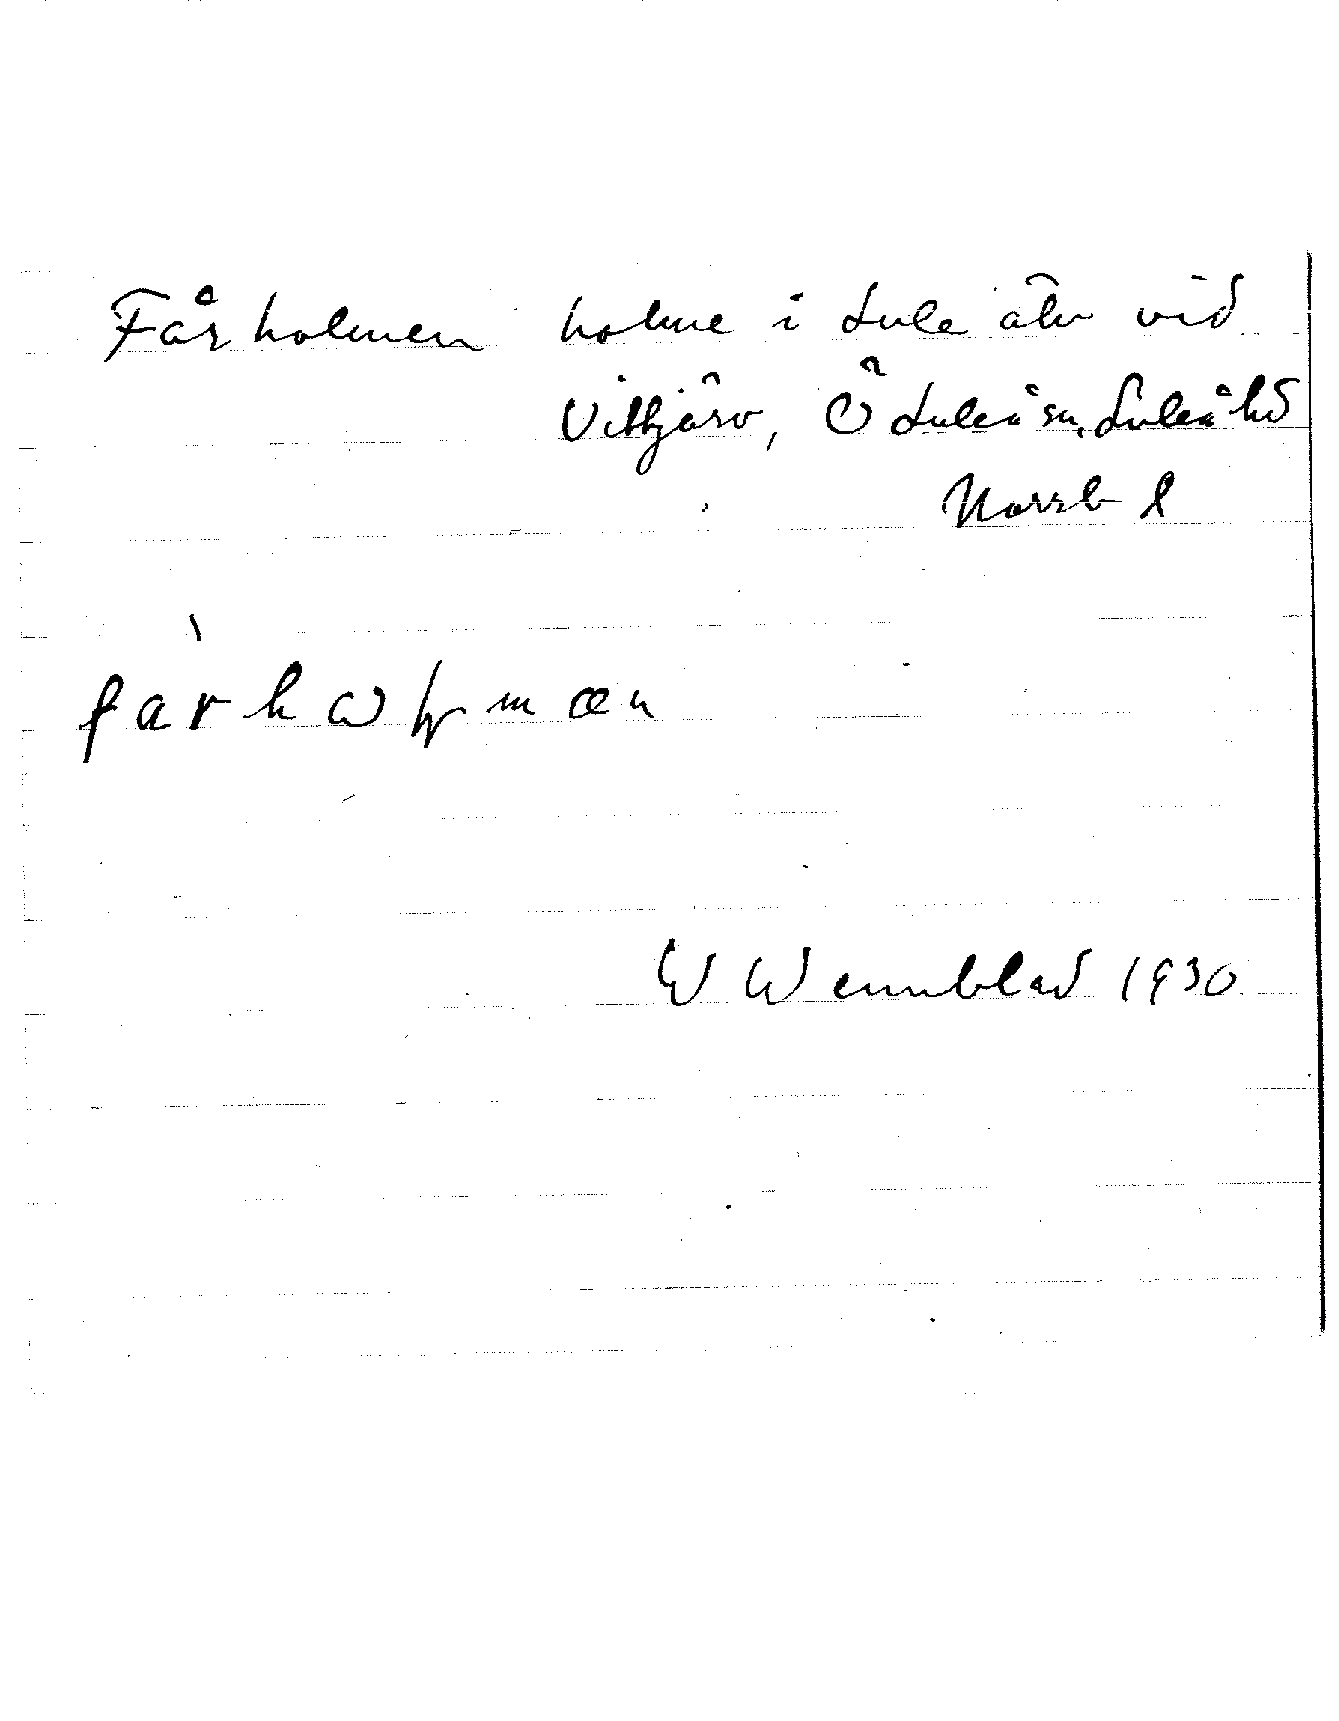 Fårholmen holme i Lule älv vid
Vittjärv, Ö Luleå sn, Luleå hd
Norrb l
fàrhωlmæn
W Wennblad 1930